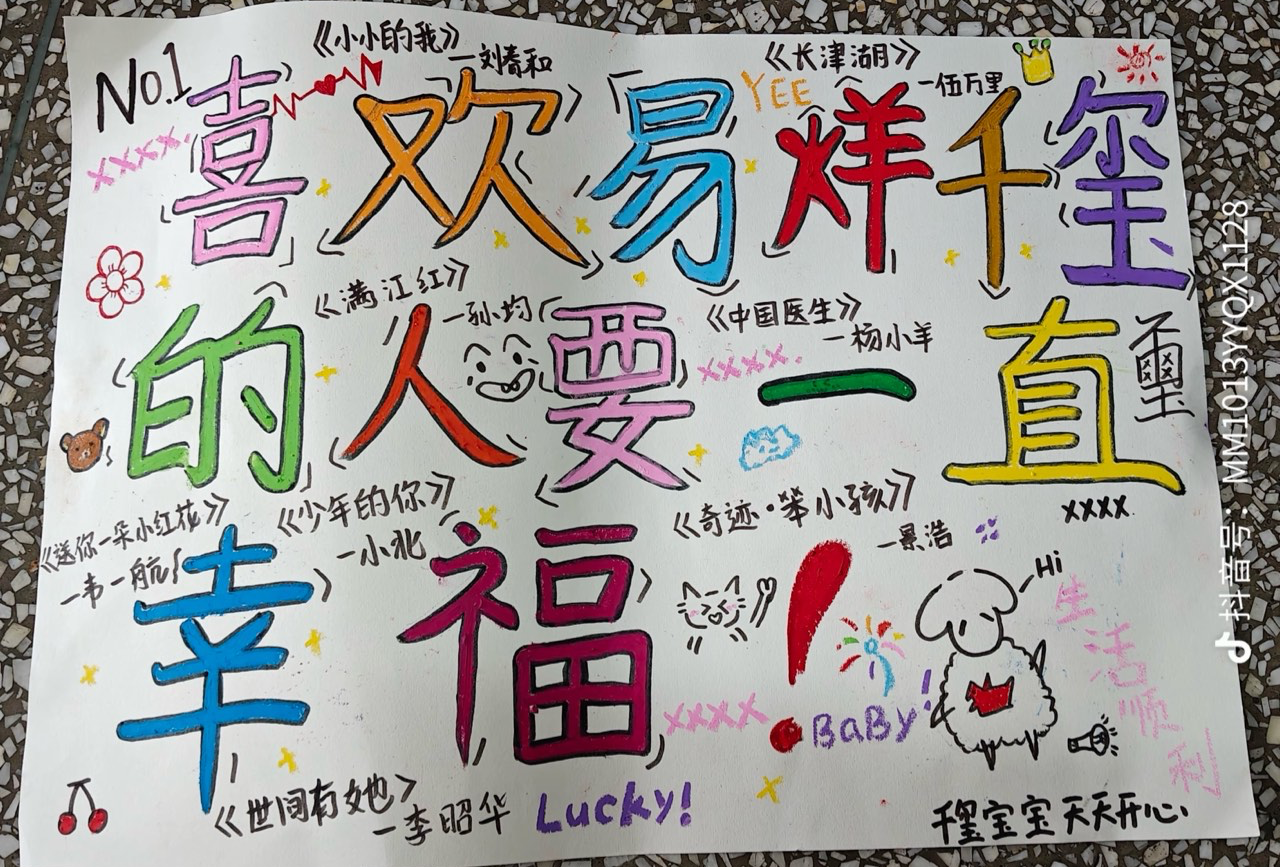 No.1
《小小的我》
—刘春和
《长津湖》
—伍万里
YEE
xxxx.
喜欢易烊千玺
《满江红》
—孙均
《中国医生》
—杨小羊
xxxx.
的人要一直
璽
xxxx
《送你一朵小红花》
—韦一航
《少年的你》
—小北
《奇迹·笨小孩》
—景浩
Hi
幸福!
生活顺利
xxxx
BaBy!
《世间有她》
—李昭华
Lucky!
千玺宝宝天天开心
抖音号: MM1013YYQX1128